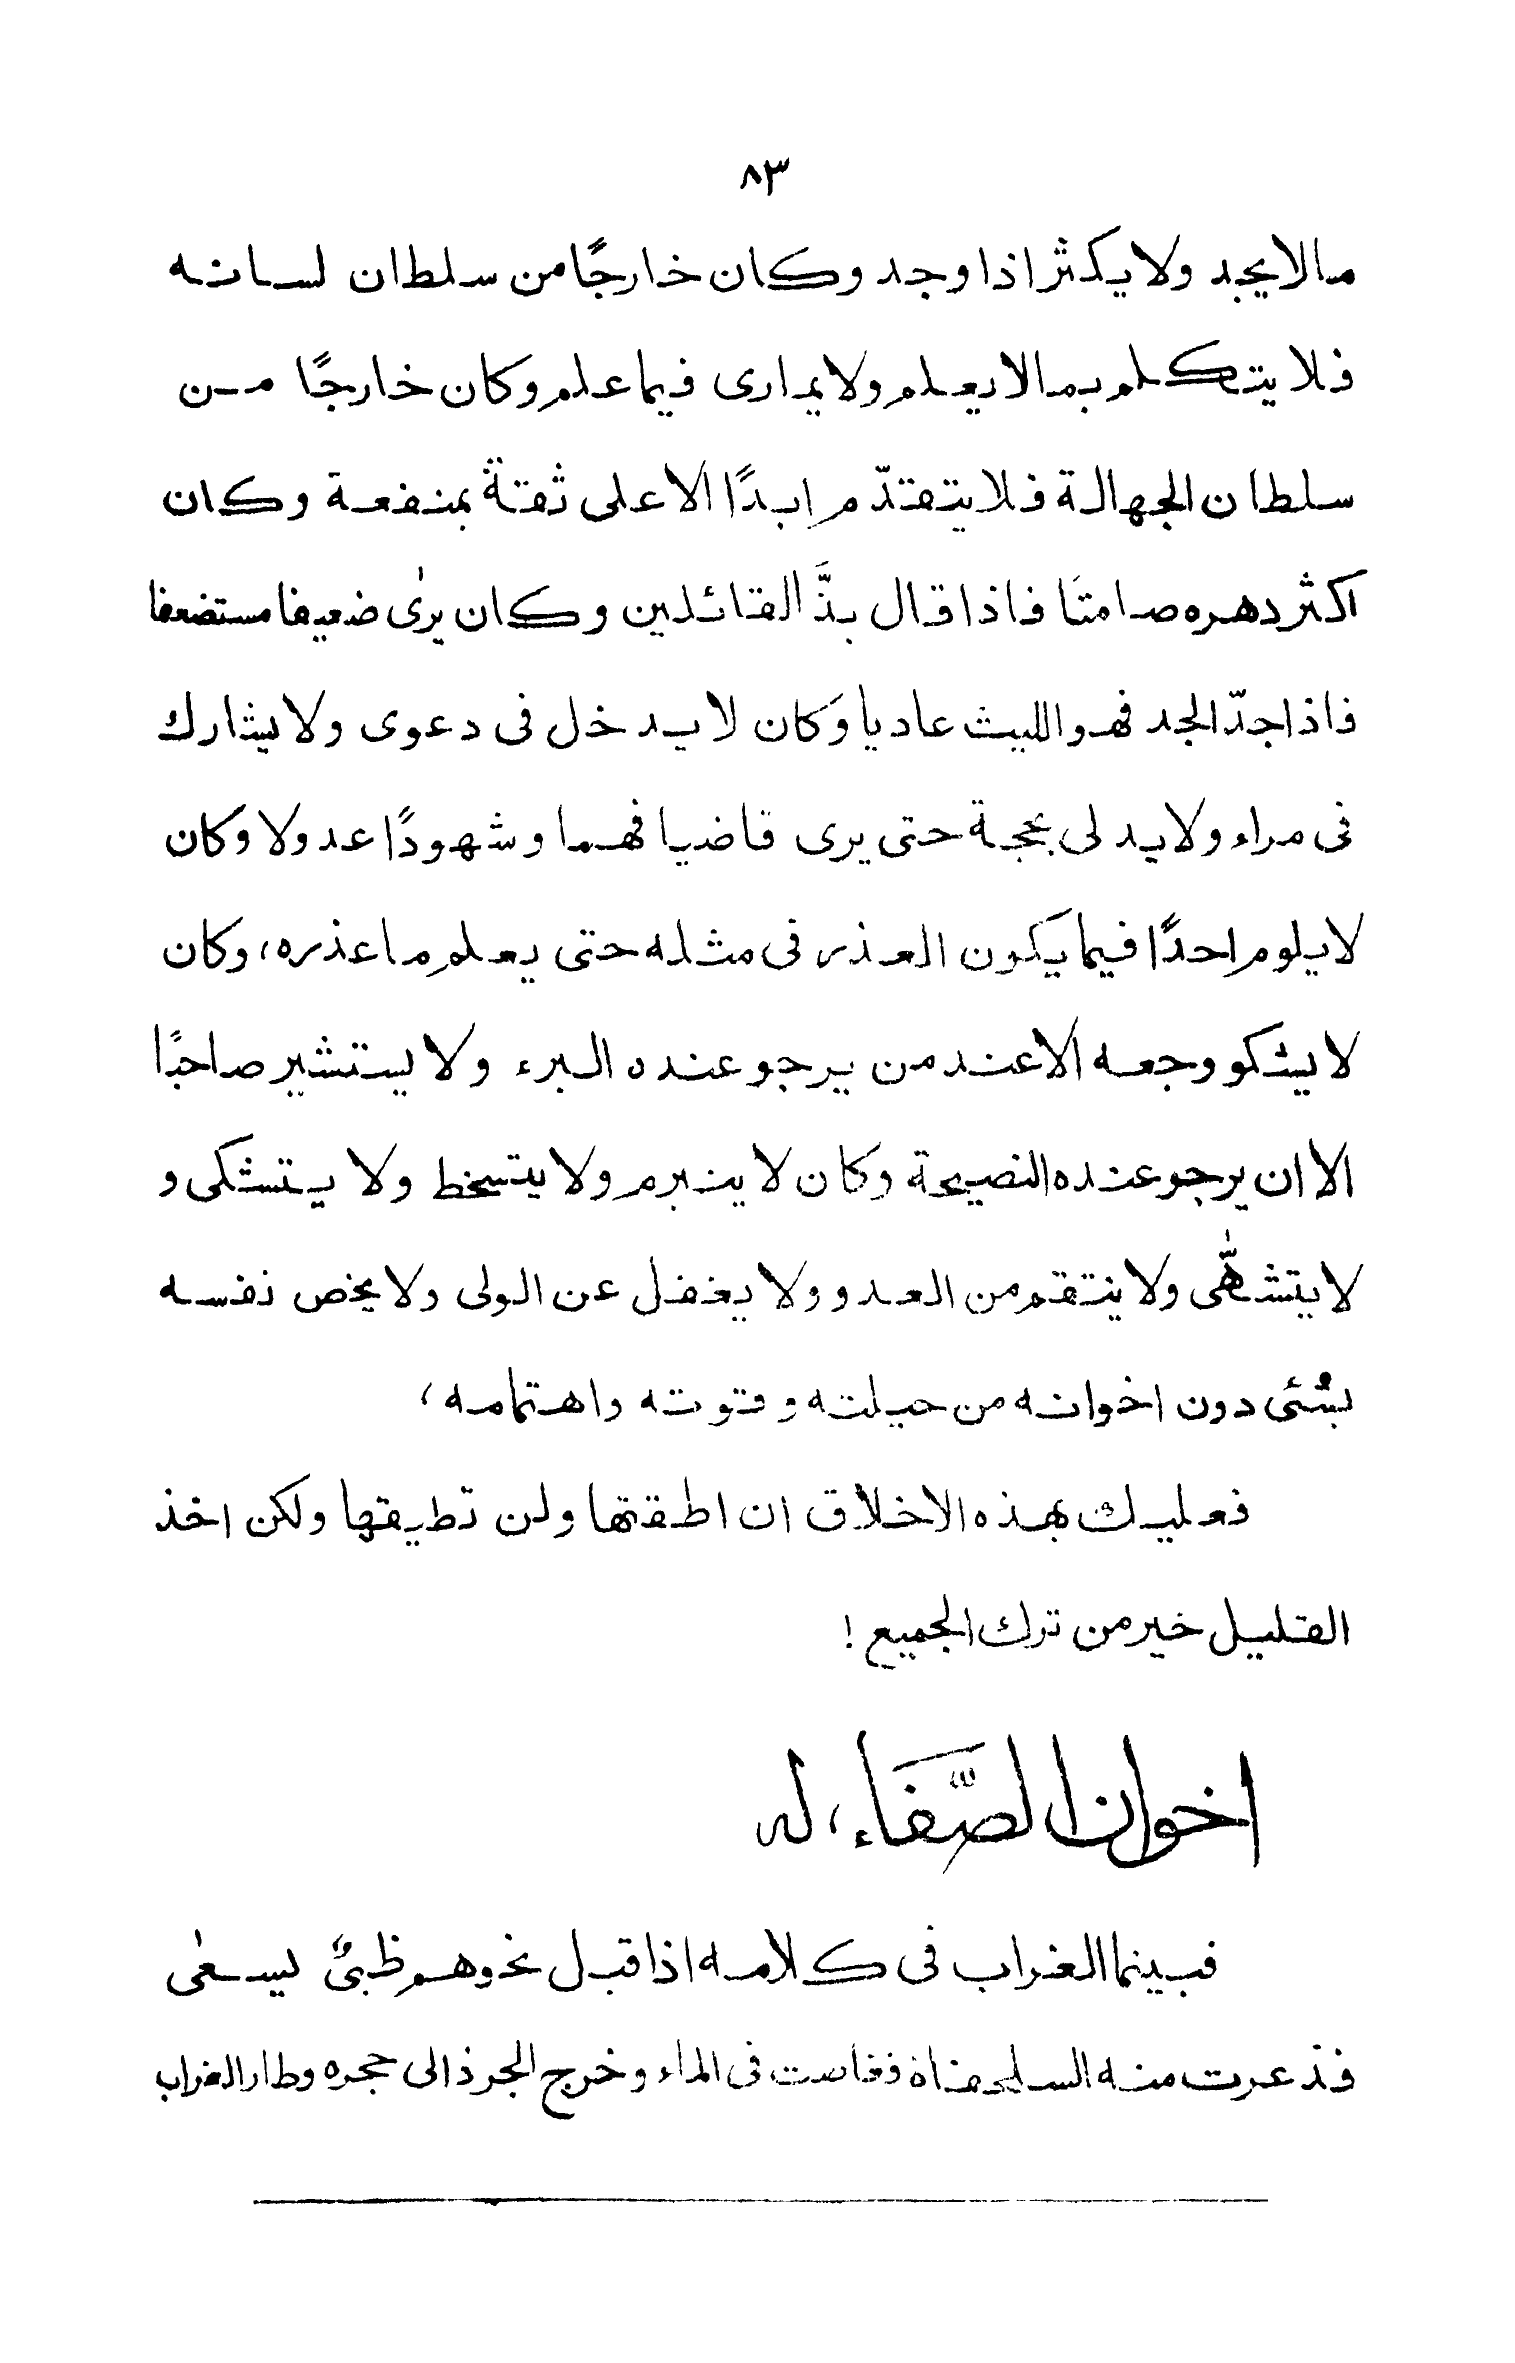 ٨٣
مالا يجد ولا يكثر اذا وجد وكان خارجًا من سلطان لسانه
فلا يتكلم بمالا يعلم ولا يمارى فيما علم وكان خارجًا من
سلطان الجهالة فلا يتقدّم ابدًا الا على ثقة بمنفعة وكان
اكثر دهره صامتًا فاذا قال بذَّ القائلين وكان يرىٰ ضعيفا مستضعفا
فاذا جدّ الجد فهو الليث عاديا وكان لا يدخل فى دعوى ولا يشارك
فى مراء ولا يدلى بحجة حتى يرى قاضيا فهما وشهودًا عدولا وكان
لا يلوم احدًا فيما يكون العذر فى مثله حتى يعلم ما عذره، وكان
لا يشكو وجعه الا عند من يرجو عنده البرء ولا يستشير صاحبًا
الا ان يرجو عنده النصيحة وكان لا يتبرم ولا يتسخط ولا يتشكى و
لا يتشهّٰى ولا ينتقم من العدو ولا يغفل عن الولى ولا يخص نفسه
بشئى دون اخوانه من حيلته وقوته واهتمامه،
فعليك بهذه الاخلاق ان اطقتها ولن تطيقها ولكن اخذ
القليل خير من ترك الجميع!
اخوان الصَّفَاء، له
فبينما الغراب فى كلامه اذا قبل نحوهم ظبىٌ يسعٰى
فذعرت منه السلحفاة فغاصت فى الماء وخرج الجرذ الى حجره وطار الغراب